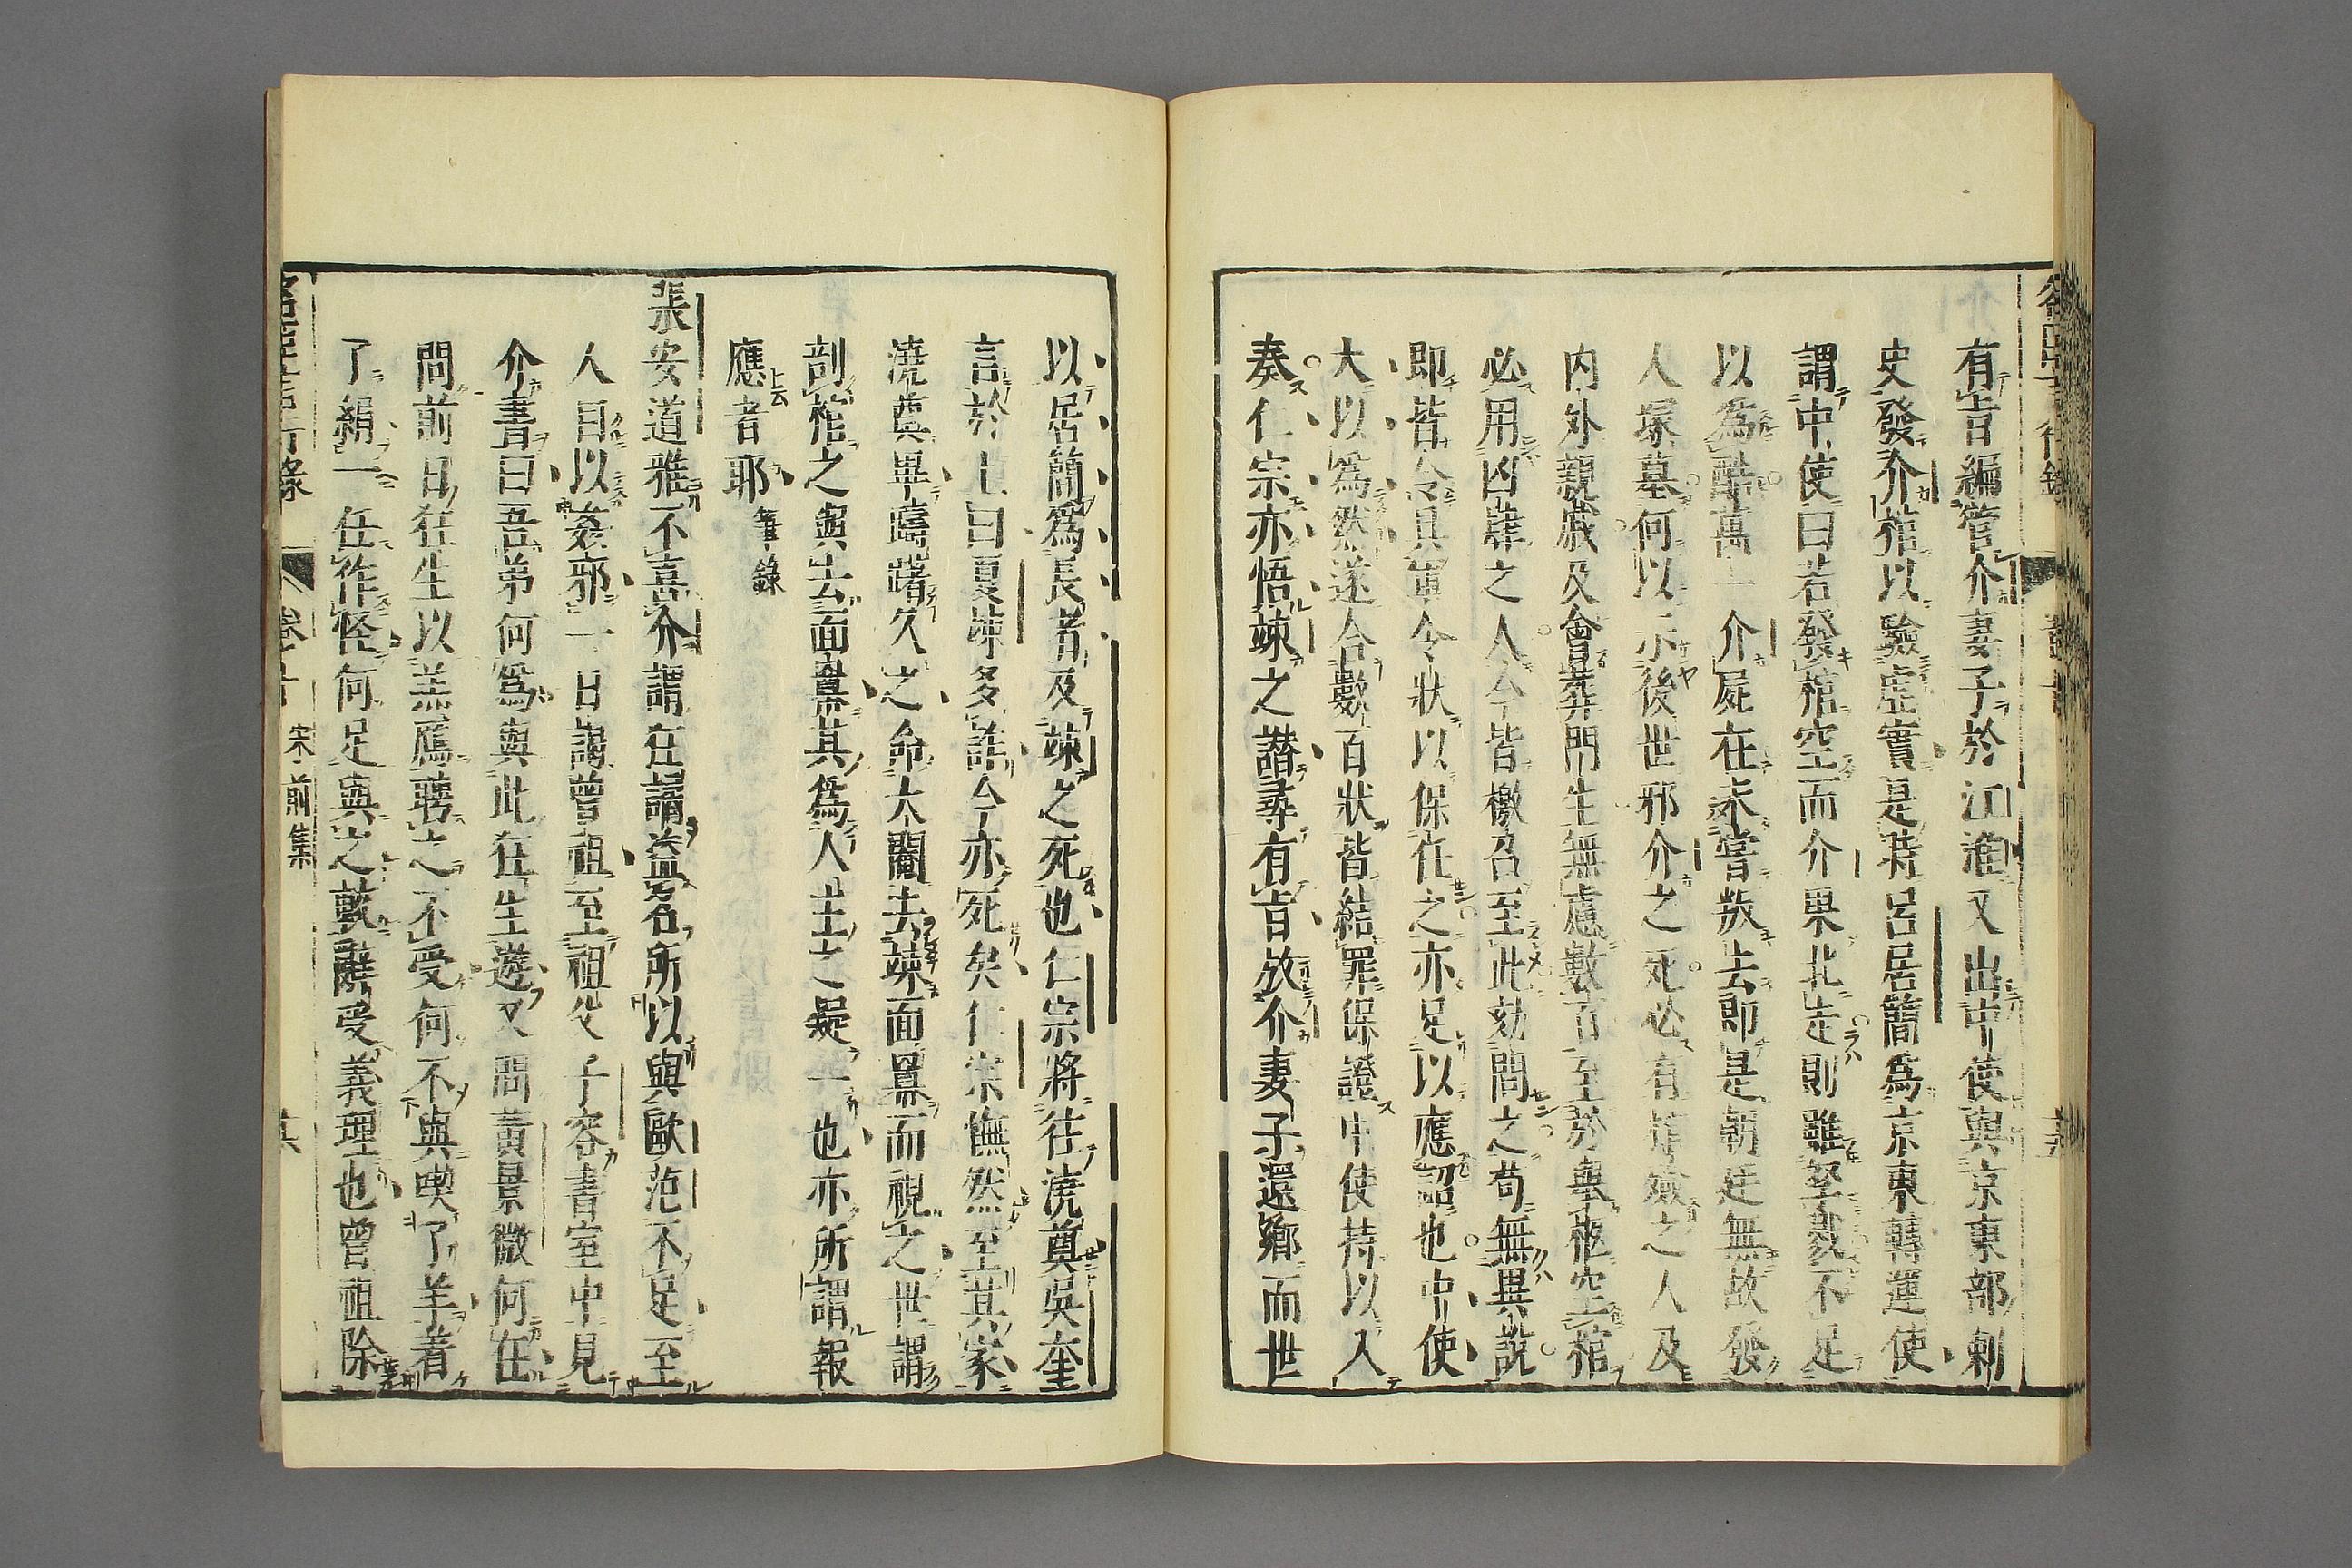 有旨編管介妻子於江淮又出中使與京東部刺
史發介棺以驗虛實是時呂居簡爲京東轉運使
謂中使曰若發棺空而介果北走則雖孥戮不足
以爲酷萬一介屍在未嘗叛去即是朝廷無故發
人塚墓何以示後世邪介之死必有棺歛之人及
内外親戚及會葬門生無慮數百至於舉柩空棺
必用凶肆之人今皆檄召至此劾問之苟無異說
即皆令具軍令狀以保任之亦足以應詔也中使
大以爲然遂合數百狀皆結罪保證中使持以入
奏仁宗亦悟竦之譖尋有旨放介妻子還鄉而世
以居簡爲長者及竦之死也仁宗將往澆奠吳奎
言於上曰夏竦多詐今亦死矣仁宗憮然至其家
澆奠畢躊躇久之命大閹去竦面冪而視之世謂
剖棺之與去面冪其爲人主之疑一也亦所謂報
應者耶 筆錄
張安道雅不喜介謂狂譎盜名所以與歐范不足至
人目以姦邪一日謁曾祖至祖父子容書室中見
介書曰吾弟何爲與此狂生遊又問黃景微何在
問前日狂生以羔鴈聘之不受何不與喫了羊着
了絹一任作怪何足與之較辭受義理也曾祖除
言行錄
卷之十
宋前集